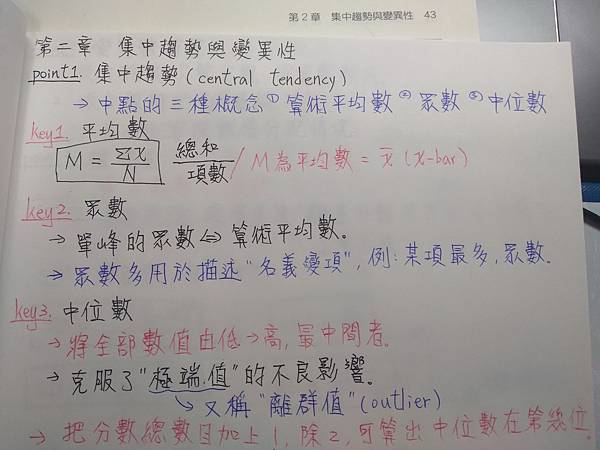 第2章 集中趨勢與變異性 43
第二章 集中趨勢與變異性
point1. 集中趨勢(central tendency)
→中點的三種概念①算術平均數②眾數③中位數
key1. 平均數
M = Σx/N 總和/項數 / M為平均數 = x̄ (x-bar)
key2. 眾數
→單峰的眾數⇔算術平均數。
→眾數多用於描述"名義變項",例:某項最多,眾數。
key3. 中位數
→將全部數值由低→高,最中間者。
→克服了"極端值"的不良影響。
↘又稱"離群值"(outlier)
→把分數總數目加上1,除2,可算出中位數在第幾位。